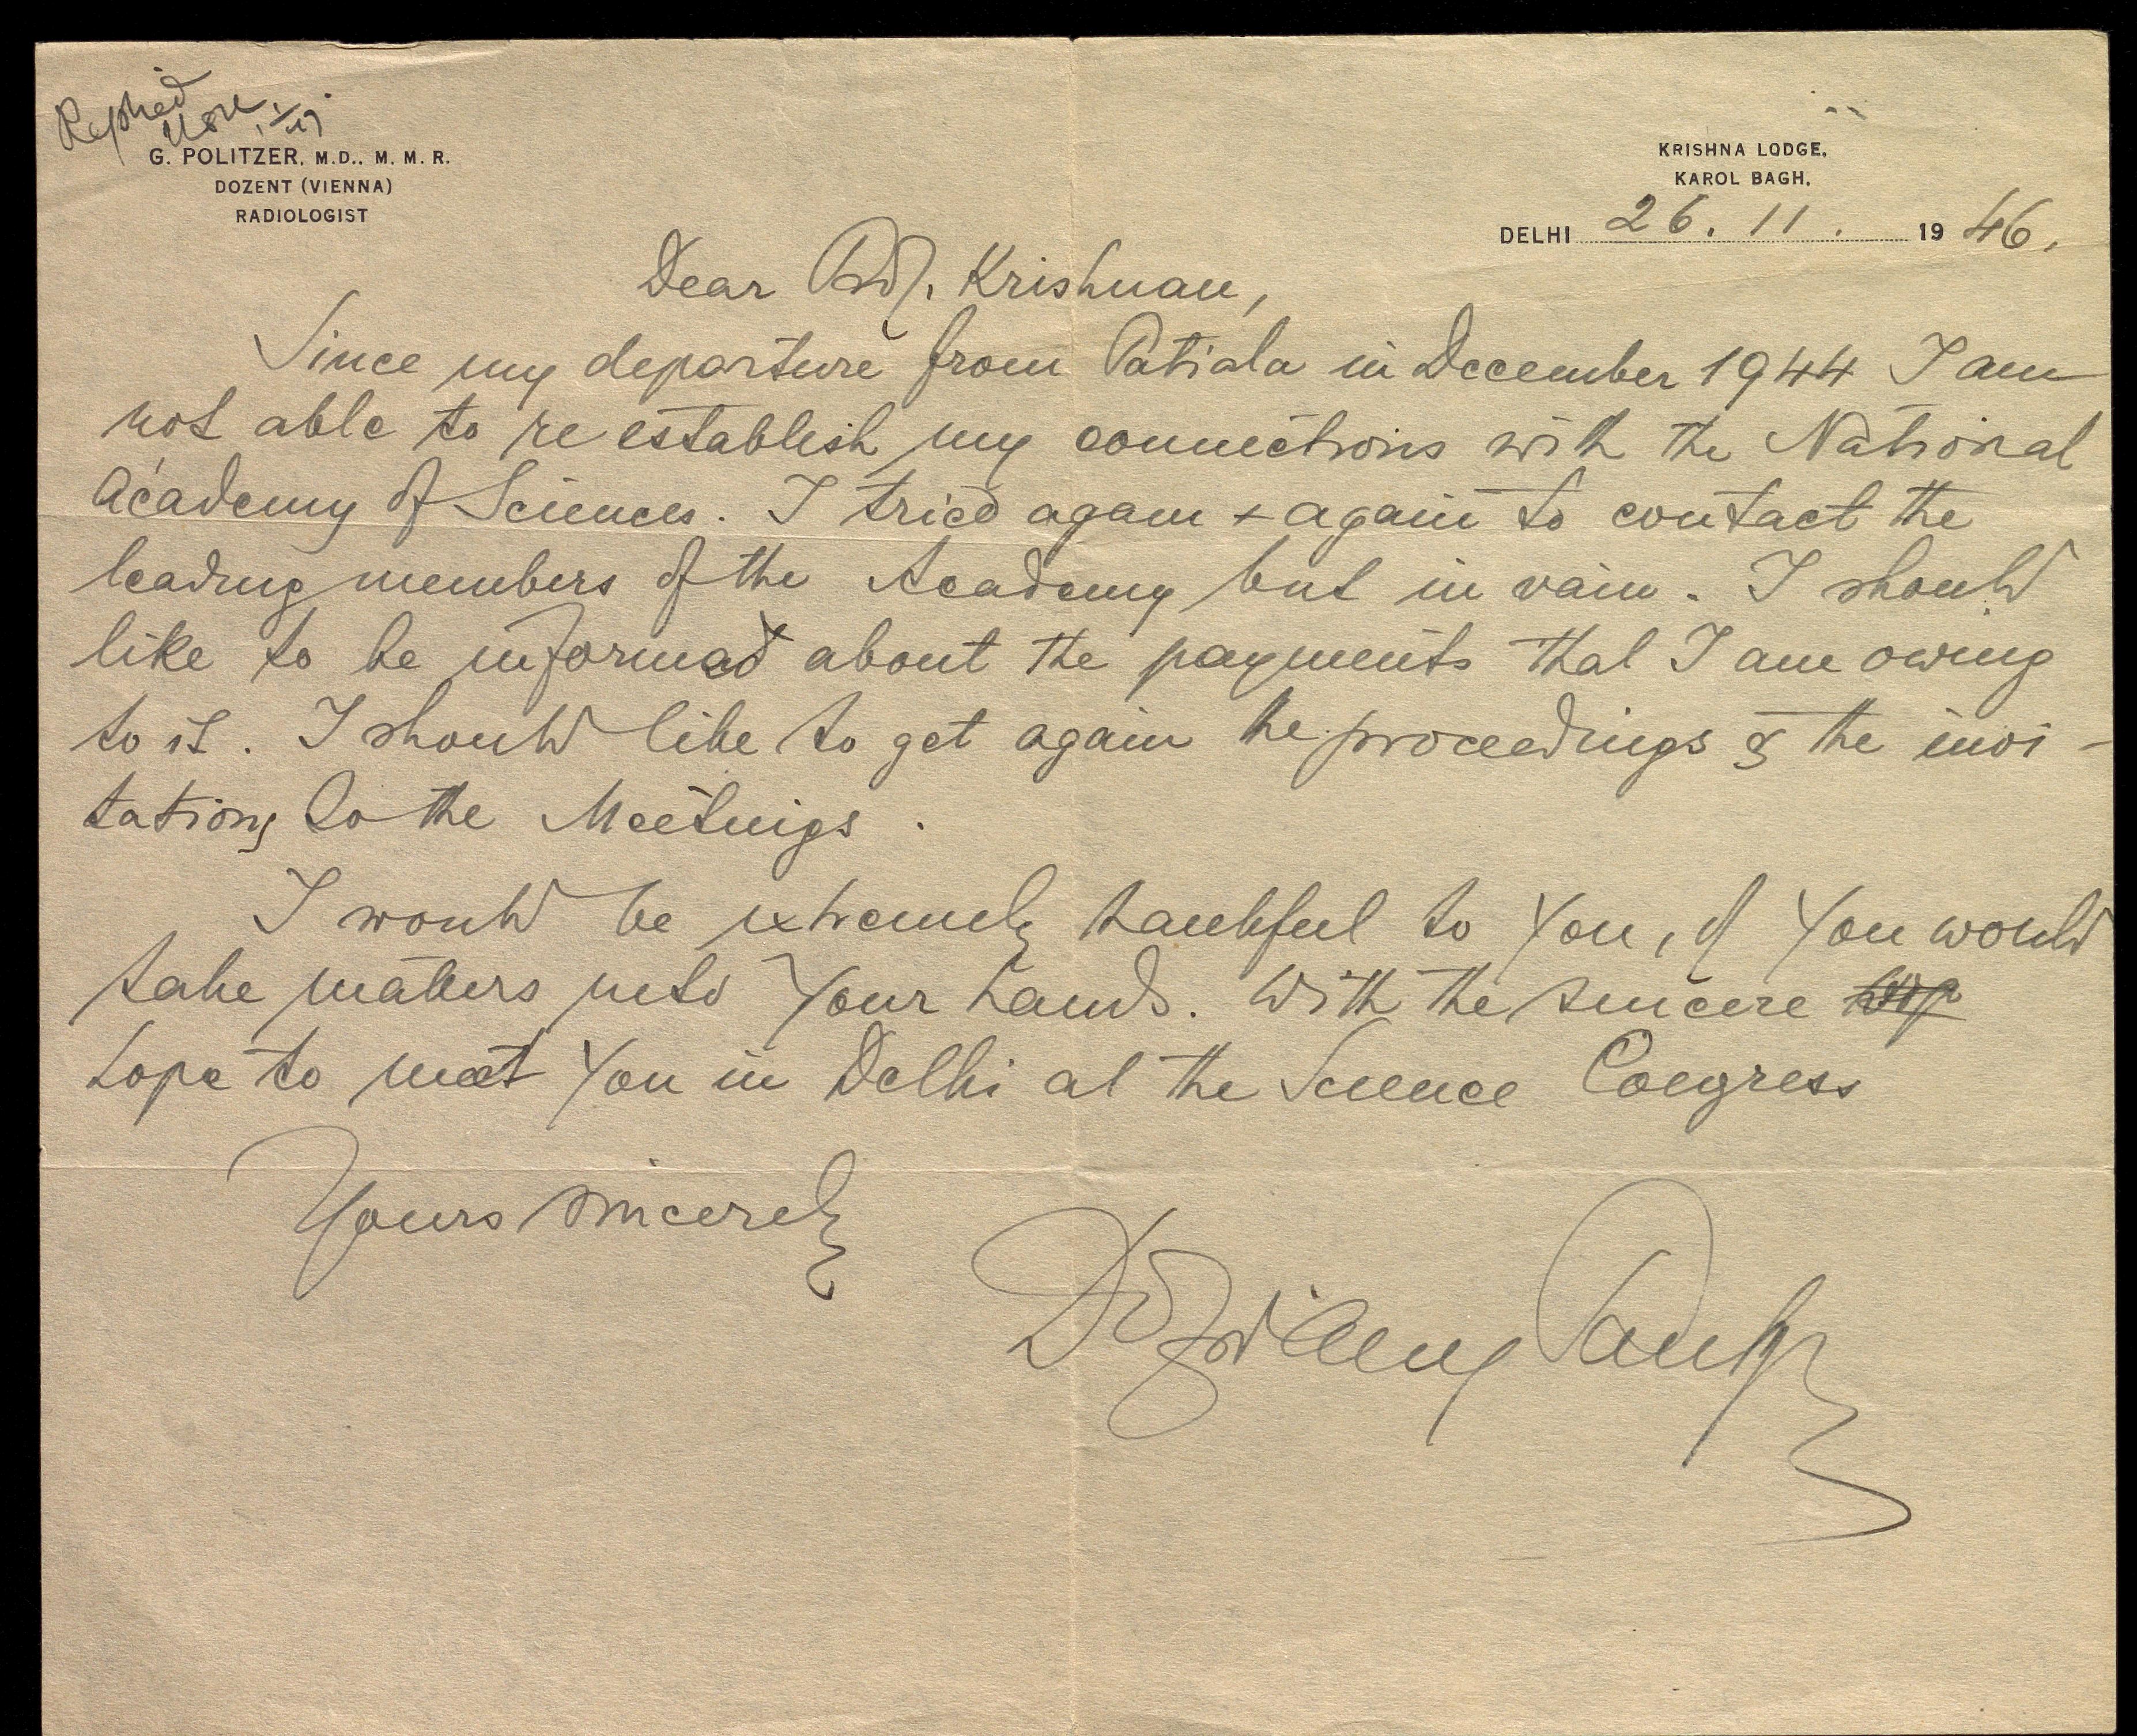 Replied
G. POLITZER, M.D., M. M. R.
DOZENT (VIENNA)
RADIOLOGIST
KRISHNA LODGE,
KAROL BAGH,
DELHI 26. 11. 1946.
Dear Prof. Krishnan,
Since my departure from Patiala in December 1944 I am
not able to re establish my connections with the National
Academy of Sciences. I tried again + again to contact the
leading members of the Academy but in vain. I should
like to be informed about the payments that I am owing
to it. I should like to get again the proceedings & the invi-
tations to the Meetings.
I would be extremely thankful to You, if You would
take matters into Your hands. With the sincere
hope to meet You in Delhi at the Science Congress
Yours sincerely